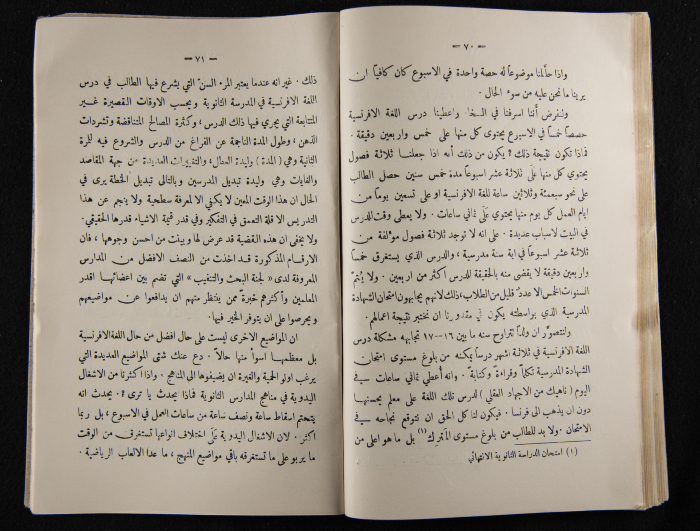 — ٧٠ —
واذا حالمنا موضوعاً له حصة واحدة في الاسبوع كان كافياً ان
يرينا ما نحن عليه من سوء الحال .
ولنفرض أننا اسرفنا في السخاء واعطينا درس اللغة الافرنسية
حصصاً خمساً في الاسبوع يحتوي كل منها على خمس واربعين دقيقة .
فماذا تكون نتيجة ذلك ؟ يكون من ذلك أنه اذا جعلنا ثلاثة فصول
يحتوي كل منها على ثلاثة عشر اسبوعاً مدة خمس سنين حصل الطالب
على نحو سبعمئة وثلاثين ساعة للغة الافرنسية او على تسعين يوماً من
ايام العمل كل يوم منها يحتوي على ثماني ساعات . ولا يعطى وقت للدرس
في البيت لاسباب عديدة . على انه لا توجد ثلاثة فصول مؤلفة من
ثلاثة عشر اسبوعاً في اية سنة مدرسية ، والدرس الذي يستغرق خمساً
واربعين دقيقة لا يقضى منه بالحقيقة للدرس أكثر من اربعين . ولا يتم
السنوات الخمس الا عدد قليل من الطلاب ، ذلك لانهم يجابهون امتحان الشهادة
المدرسية الذي بواسطته يكون في مقدورنا ان نختبر نتيجة اعمالهم .
ولنتصور ان ولداً تتراوح سنه ما بين ١٦–١٧ تجابهه مشكلة درس
اللغة الافرنسية في ثلاثة اشهر درساً يمكنه من بلوغ مستوى امتحان
الشهادة المدرسية تكلماً وقراءة وكتابة . وانه أعطي ثماني ساعات في
اليوم ( ناهيك من الاجهاد العقلي ) لدرس تلك اللغة على معلم يحسنها
دون ان يذهب الى فرنسا . فيكون لنا كل الحق ان نتوقع نجاحه في
الامتحان . ولا بد للطالب من بلوغ مستوى المتريك (١) بل ما هو اعلى من
(١) امتحان الدراسة الثانوية الانتهائي
— ٧١ —
ذلك . غير انه عندما يعتبر المرء السن التي يشرع فيها الطالب في درس
اللغة الافرنسية في المدرسة الثانوية وبحسب الاوقات القصيرة غير
المتتابعة التي يجري فيها ذلك الدرس ، وكثرة المصالح المتناقضة وتشردات
الذهن ، وطول المدة الناجمة عن الفراغ من الدرس والشروع فيه للمرة
الثانية وهي ( المدة ) وليدة العطل ، والتغييرات العديدة من جهة المقاصد
والغايات وهي وليدة تبديل المدرسين وبالتالى تبديل الخطة يرى في
الحال ان هذا الوقت المعين لا يكفي الا لمعرفة سطحية ولا ينجم عن هذا
التدريس الا قلة التعمق في التفكير وفي قدر قيمة الاشياء قدرها الحقيقي .
ولا يخفى ان هذه القضية قد عرض لها وبينت من احسن وجوهها ، فان
الارقام المذكورة قد اخذت من النصف الافضل من المدارس
المعروفة لدى « لجنة البحث والتنقيب » التي تضم بين اعضائها اقدر
المعلمين وأكثرهم خبرة ممن ينتظر منهم ان يدافعوا عن مواضيعهم
ويحرصوا على ان يتوفر الخير فيها .
ان المواضيع الاخرى ليست على حال افضل من حال اللغة الافرنسية
بل معظمها اسوأ منها حالاً . دع عنك شتى المواضيع العديدة التي
يرغب اولو الحمية والغيرة ان يضيفوها الى المناهج . واذا اكثرنا من الاشغال
اليدوية في مناهج المدارس الثانوية فماذا يحدث يا ترى ؟ يحدث انه
يتحتم اسقاط ساعة ونصف ساعة من ساعات العمل في الاسبوع ، بل ربما
اكثر . لان الاشغال اليدوية على اختلاف انواعها تستغرق من الوقت
ما يربو على ما تستغرقه باقي مواضيع المنهج ، ما عدا الالعاب الرياضية .